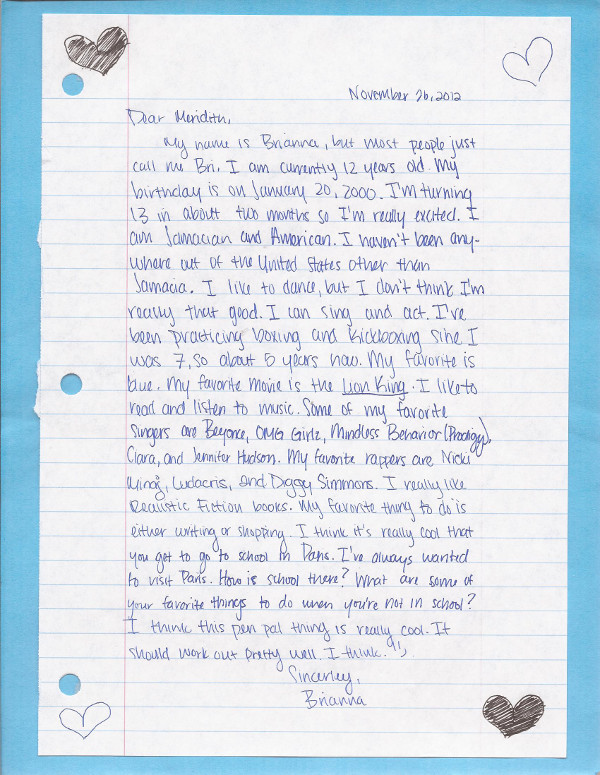 November 26, 2012
Dear Meridith,
My name is Brianna, but most people just
call me Bri. I am currently 12 years old. My
birthday is on January 20, 2000. I'm turning
13 in about two months so I'm really excited. I
am Jamacian and American. I haven't been any-
where out of the United States other than
Jamacia. I like to dance, but I don't think I'm
really that good. I can sing and act. I've
been practicing boxing and kickboxing sine I
was 7, so about 5 years now. My favorite is
blue. My favorite movie is the Lion King. I like to
read and listen to music. Some of my favorite
singers are Beyonce, OMG Girlz, Mindless Behavior (Prodigy),
Ciara, and Jennifer Hudson. My favorite rappers are Nicki
Minaj, Ludacris, and Diggy Simmons. I really like
Realistic Fiction books. My favorite thing to do is
either writing or shopping. I think it's really cool that
you get to go to school in Paris. I've always wanted
to visit Paris. How is school there? What are some of
your favorite things to do when you're not in school?
I think this pen pal thing is really cool. It
should work out pretty well. I think.
Sincerley,
Brianna